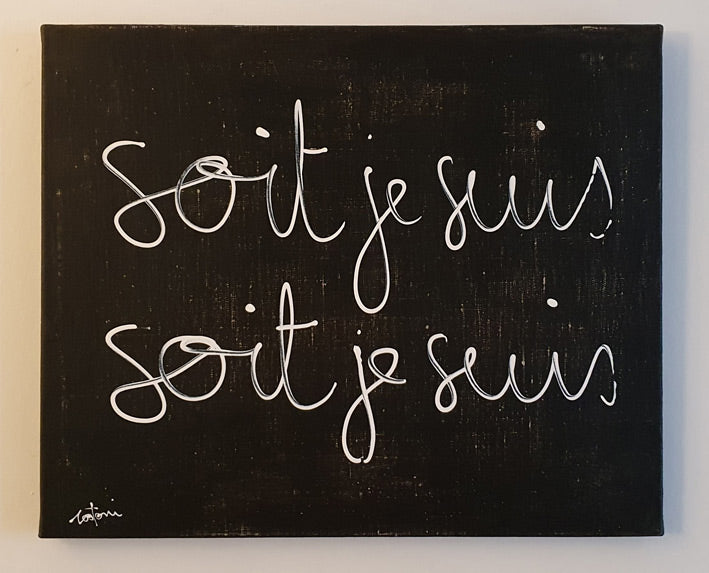 soit je suis
soit je suis